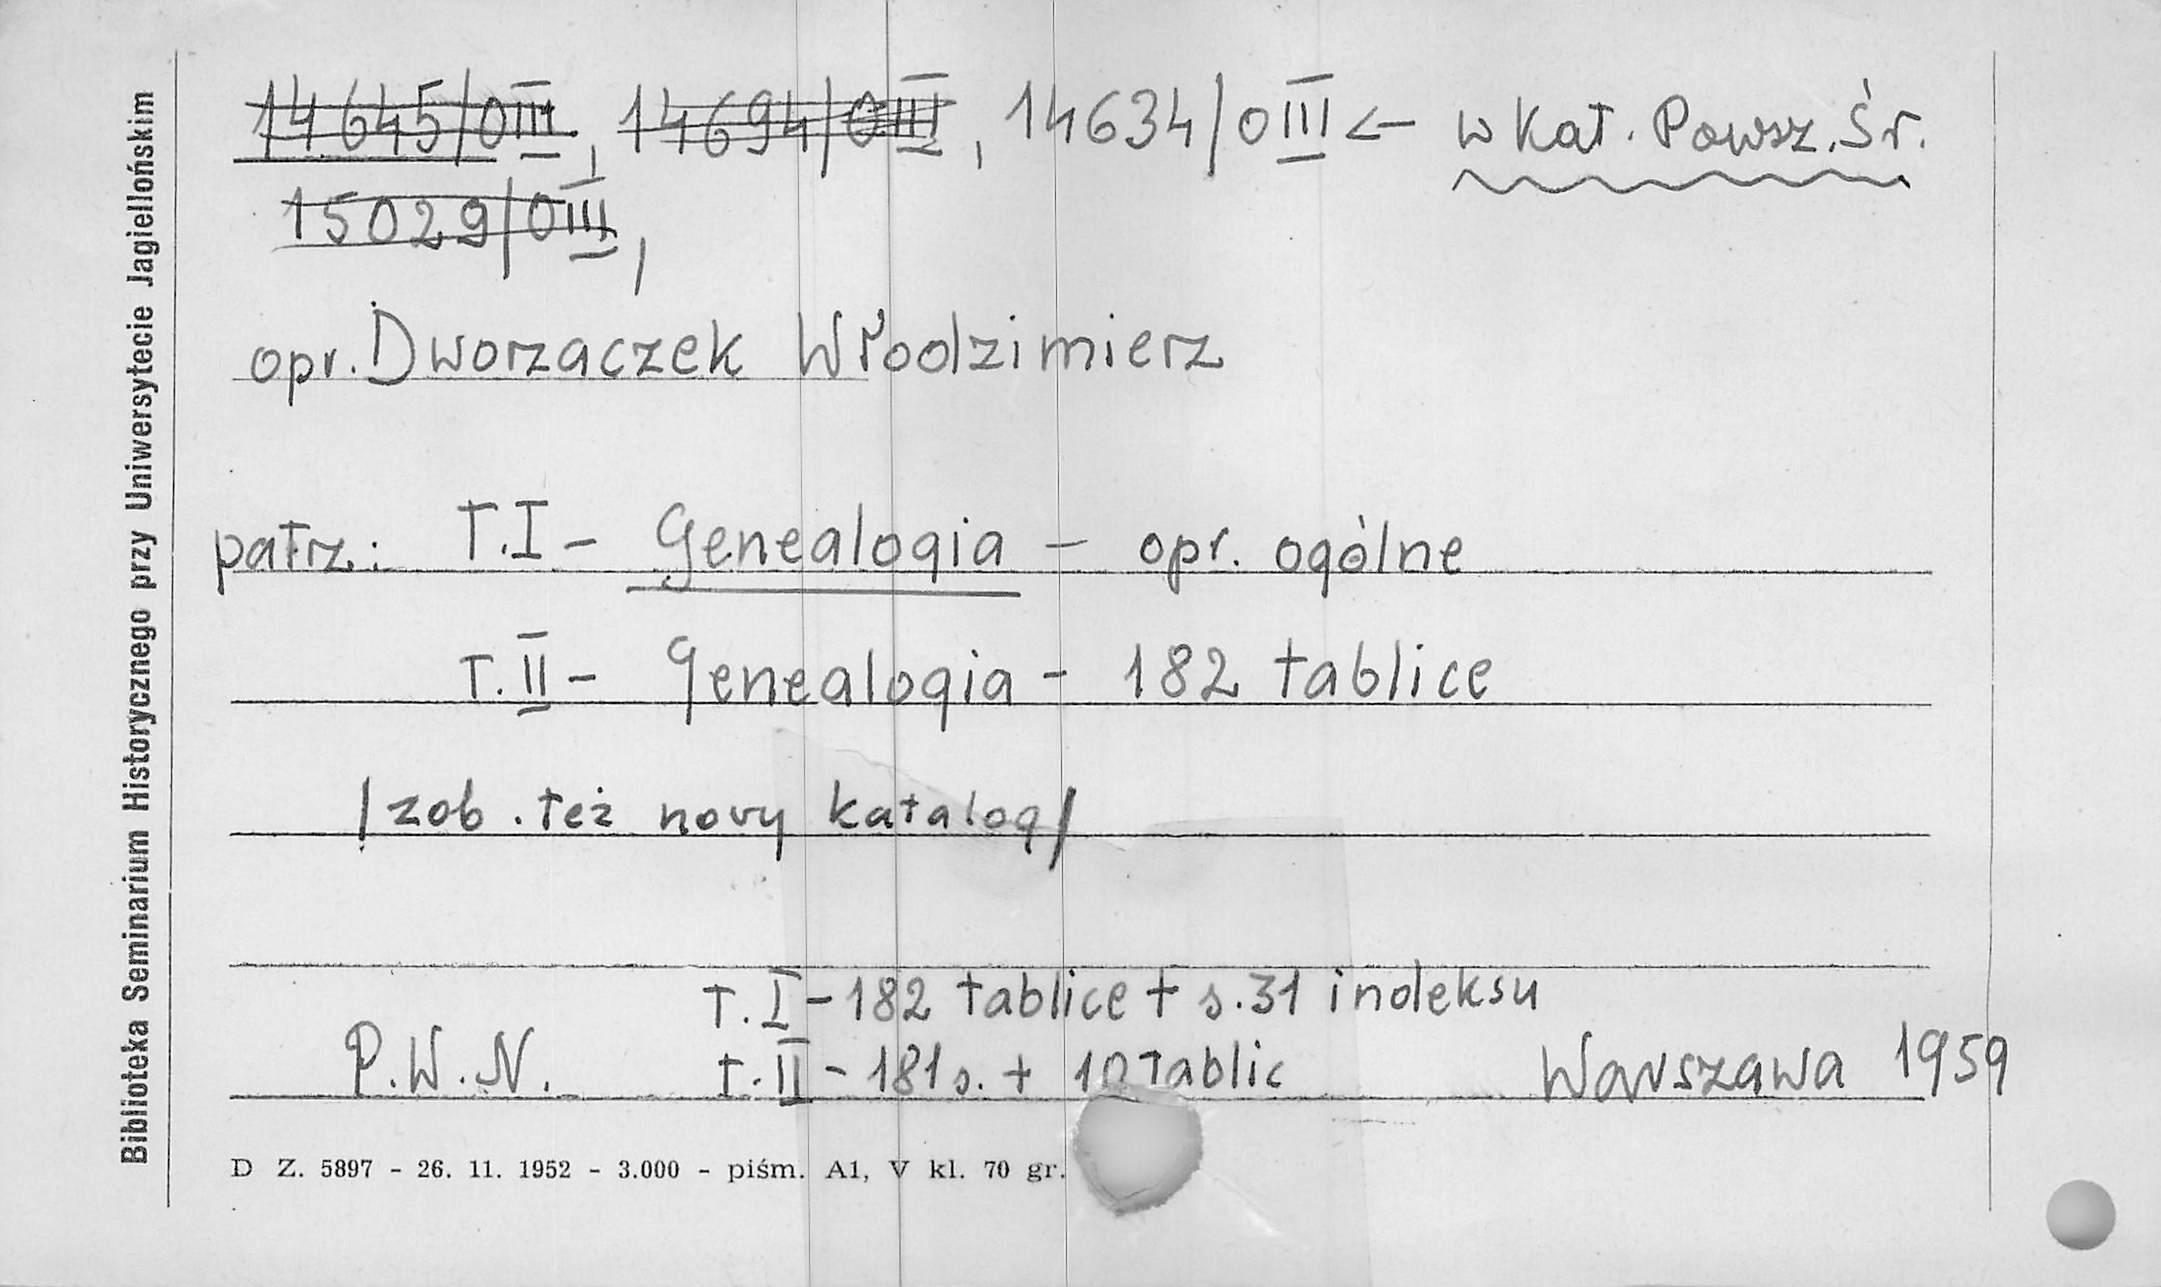 14645/0III, 14694/0III, 14634/0III ← w Kat. Powsz. Śr.
15029/0III,
opr. Dworzaczek Włodzimierz
patrz: T.I – Genealogia – opr. ogólne
T.II – Genealogia – 182 tablice
/zob. też novy katalog/
T.I – 182 tablice + s.31 indeksu
P.W.N. T.II – 181 s. + 10 tablic Warszawa 1959
D Z. 5897 - 26. 11. 1952 - 3.000 - piśm. A1, V kl. 70 gr.
Biblioteka Seminarium Historycznego przy Uniwersytecie Jagiellońskim